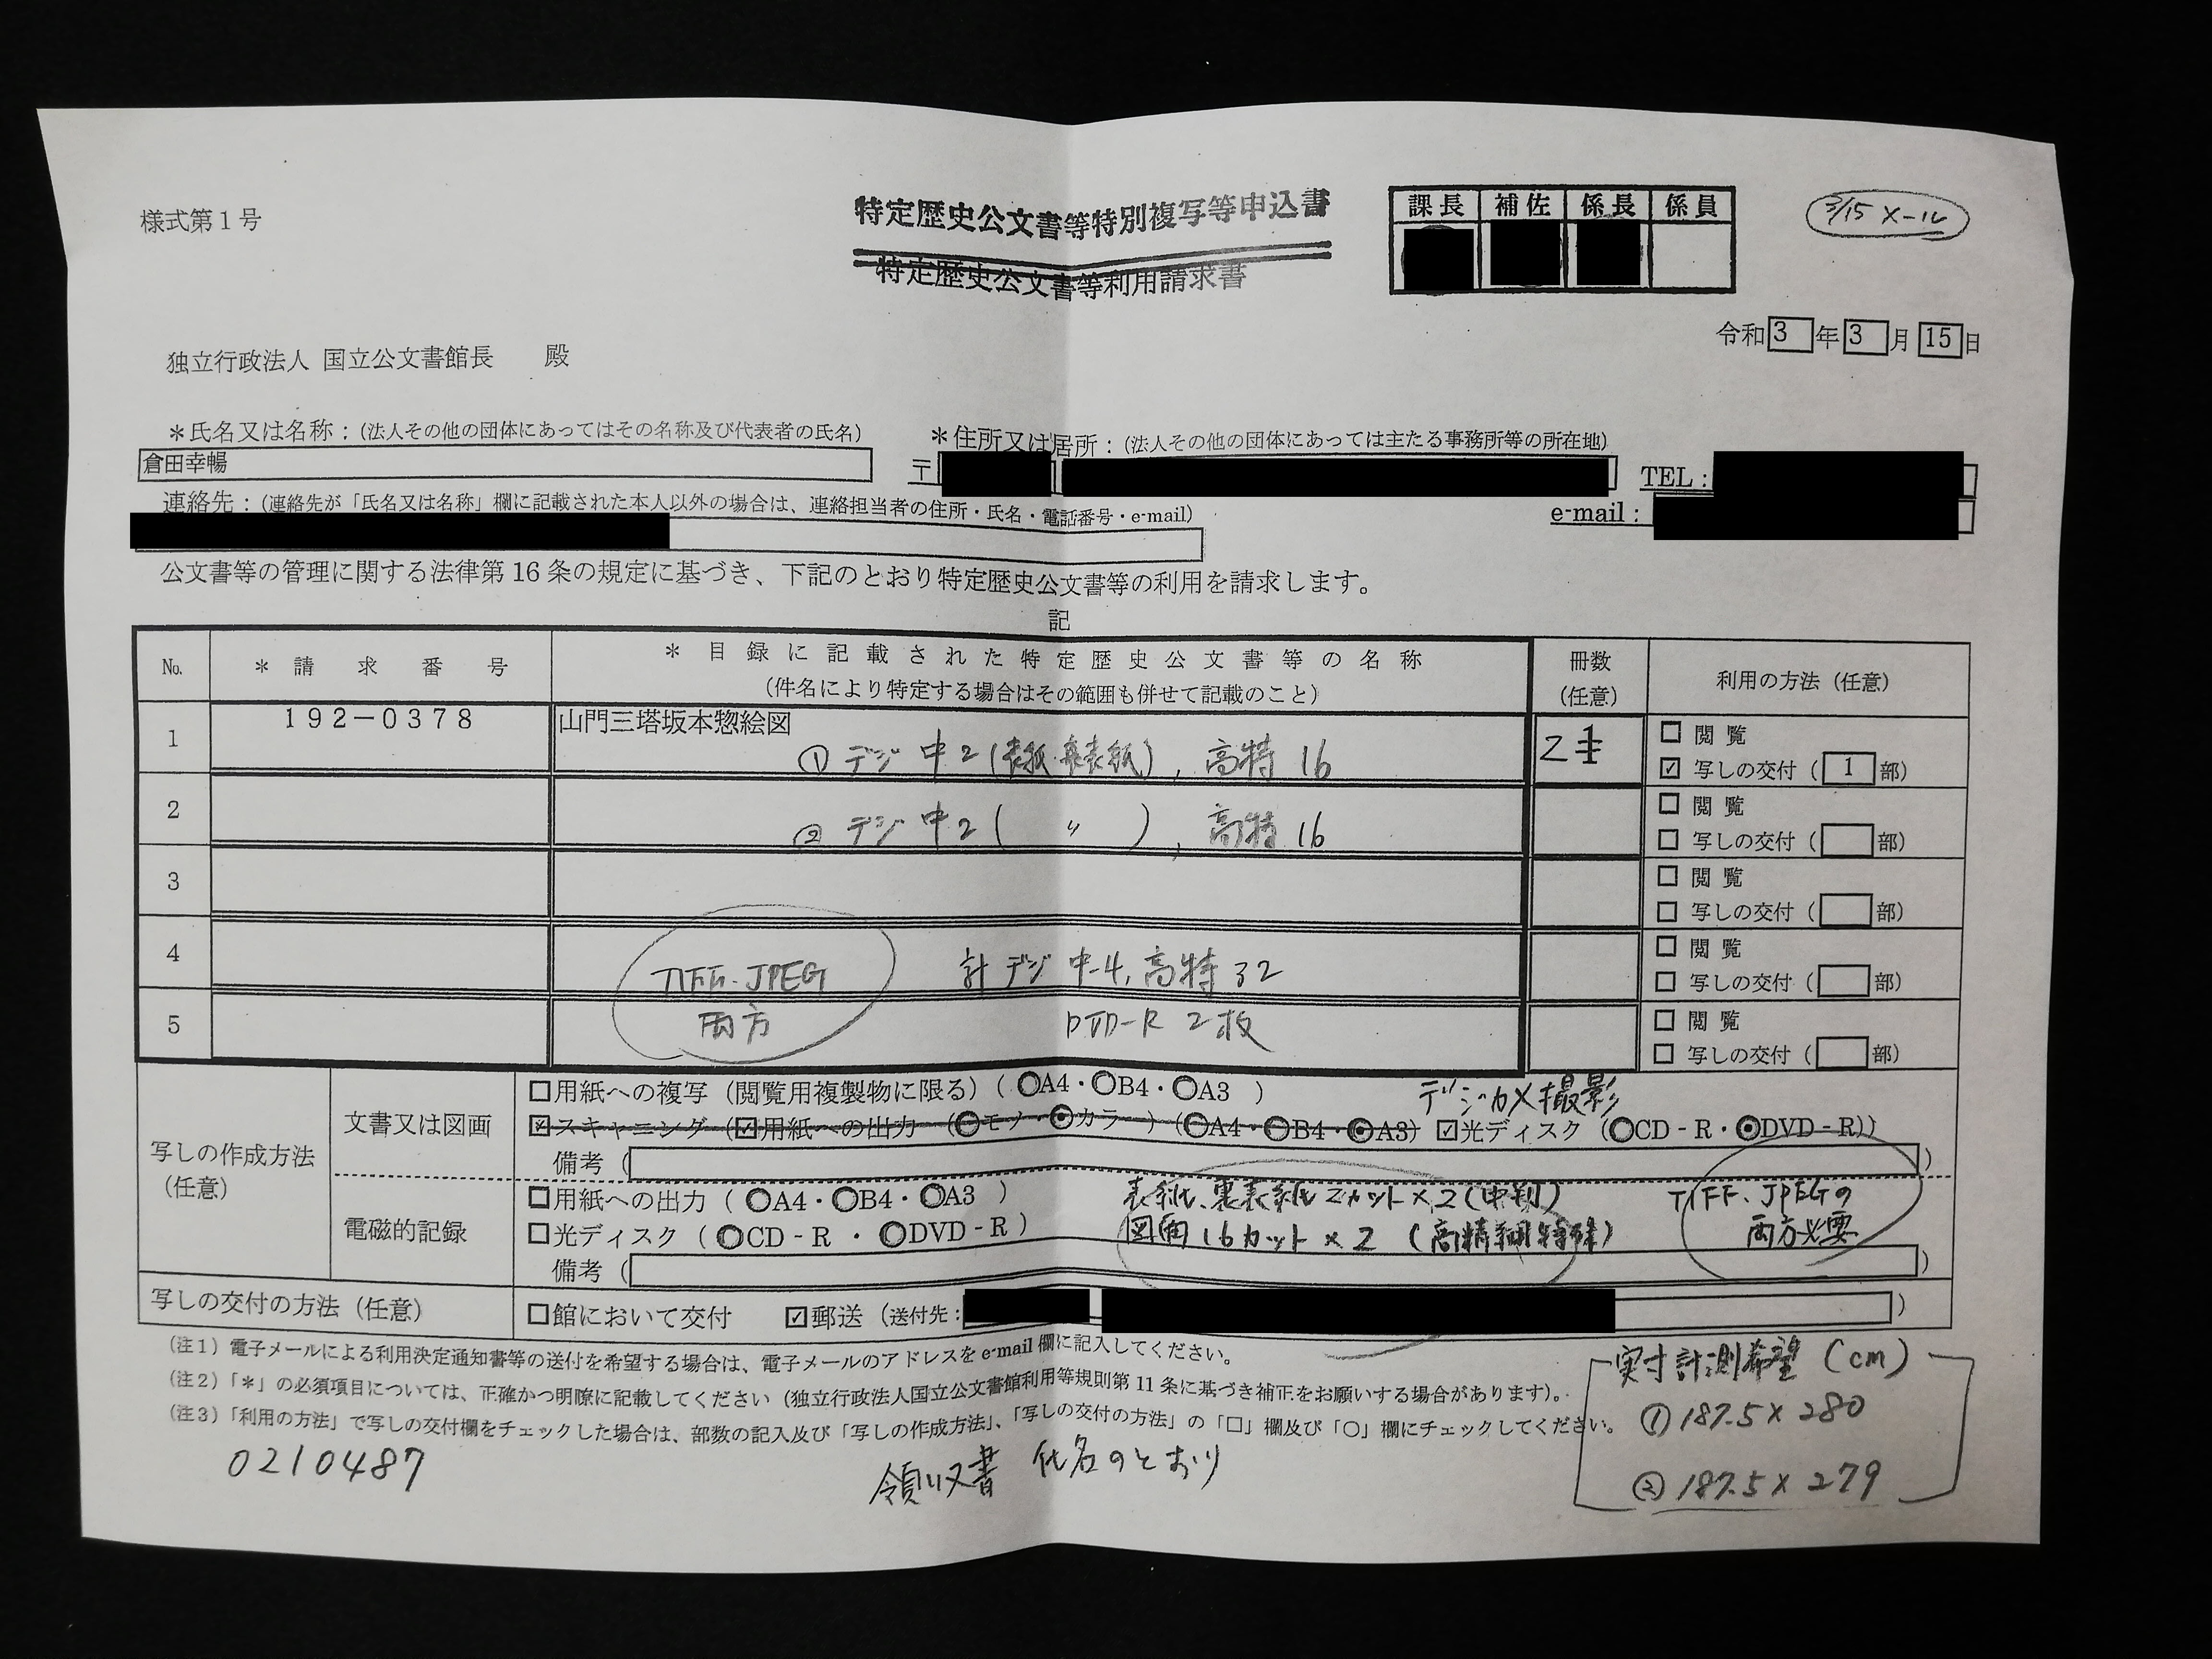 様式第1号
特定歴史公文書等特別複写等申込書
特定歴史公文書等利用請求書
課長 補佐 係長 係員
3/15 メール
令和3年3月15日
独立行政法人 国立公文書館長 殿
＊氏名又は名称：(法人その他の団体にあってはその名称及び代表者の氏名)
＊住所又は居所：(法人その他の団体にあっては主たる事務所等の所在地)
倉田幸暢
〒
TEL：
連絡先：(連絡先が「氏名又は名称」欄に記載された本人以外の場合は、連絡担当者の住所・氏名・電話番号・e-mail)
e-mail：
公文書等の管理に関する法律第16条の規定に基づき、下記のとおり特定歴史公文書等の利用を請求します。
記
No. ＊請求番号 ＊目録に記載された特定歴史公文書等の名称 冊数 利用の方法（任意）
（件名により特定する場合はその範囲も併せて記載のこと） （任意）
1 192－0378 山門三塔坂本惣絵図 2 1 □ 閲覧
① デジ 中2(表紙・裏表紙), 高特 16 ☑ 写しの交付（1部）
2 □ 閲覧
② デジ 中2( 〃 ), 高特 16 □ 写しの交付（ 部）
3 □ 閲覧
□ 写しの交付（ 部）
4 TIFF・JPEG 計 デジ 中-4, 高特 32 □ 閲覧
□ 写しの交付（ 部）
5 両方 DVD-R 2枚 □ 閲覧
□ 写しの交付（ 部）
写しの作成方法（任意）
文書又は図画
□用紙への複写（閲覧用複製物に限る）（ ○A4・○B4・○A3 ） デジカメ撮影
☑スキャニング（☑用紙への出力 （○モノ・◉カラー）（○A4・○B4・◉A3） ☑光ディスク（○CD-R・◉DVD-R））
備考（ ）
電磁的記録
□用紙への出力（ ○A4・○B4・○A3 ） 表紙、裏表紙 2カット×2(中判) TIFF・JPEGの
□光ディスク（ ○CD-R ・ ○DVD-R ） 図面 16カット×2 (高精細特殊) 両方必要
備考（ ）
写しの交付の方法（任意） □館において交付 ☑郵送（送付先： ）
（注1）電子メールによる利用決定通知書等の送付を希望する場合は、電子メールのアドレスをe-mail欄に記入してください。
（注2）「＊」の必須項目については、正確かつ明瞭に記載してください（独立行政法人国立公文書館利用等規則第11条に基づき補正をお願いする場合があります）。
（注3）「利用の方法」で写しの交付欄をチェックした場合は、部数の記入及び「写しの作成方法」、「写しの交付の方法」の「□」欄及び「○」欄にチェックしてください。
実寸計測希望 (cm)
① 187.5×280
② 187.5×279
0210487
領収書 氏名のとおり